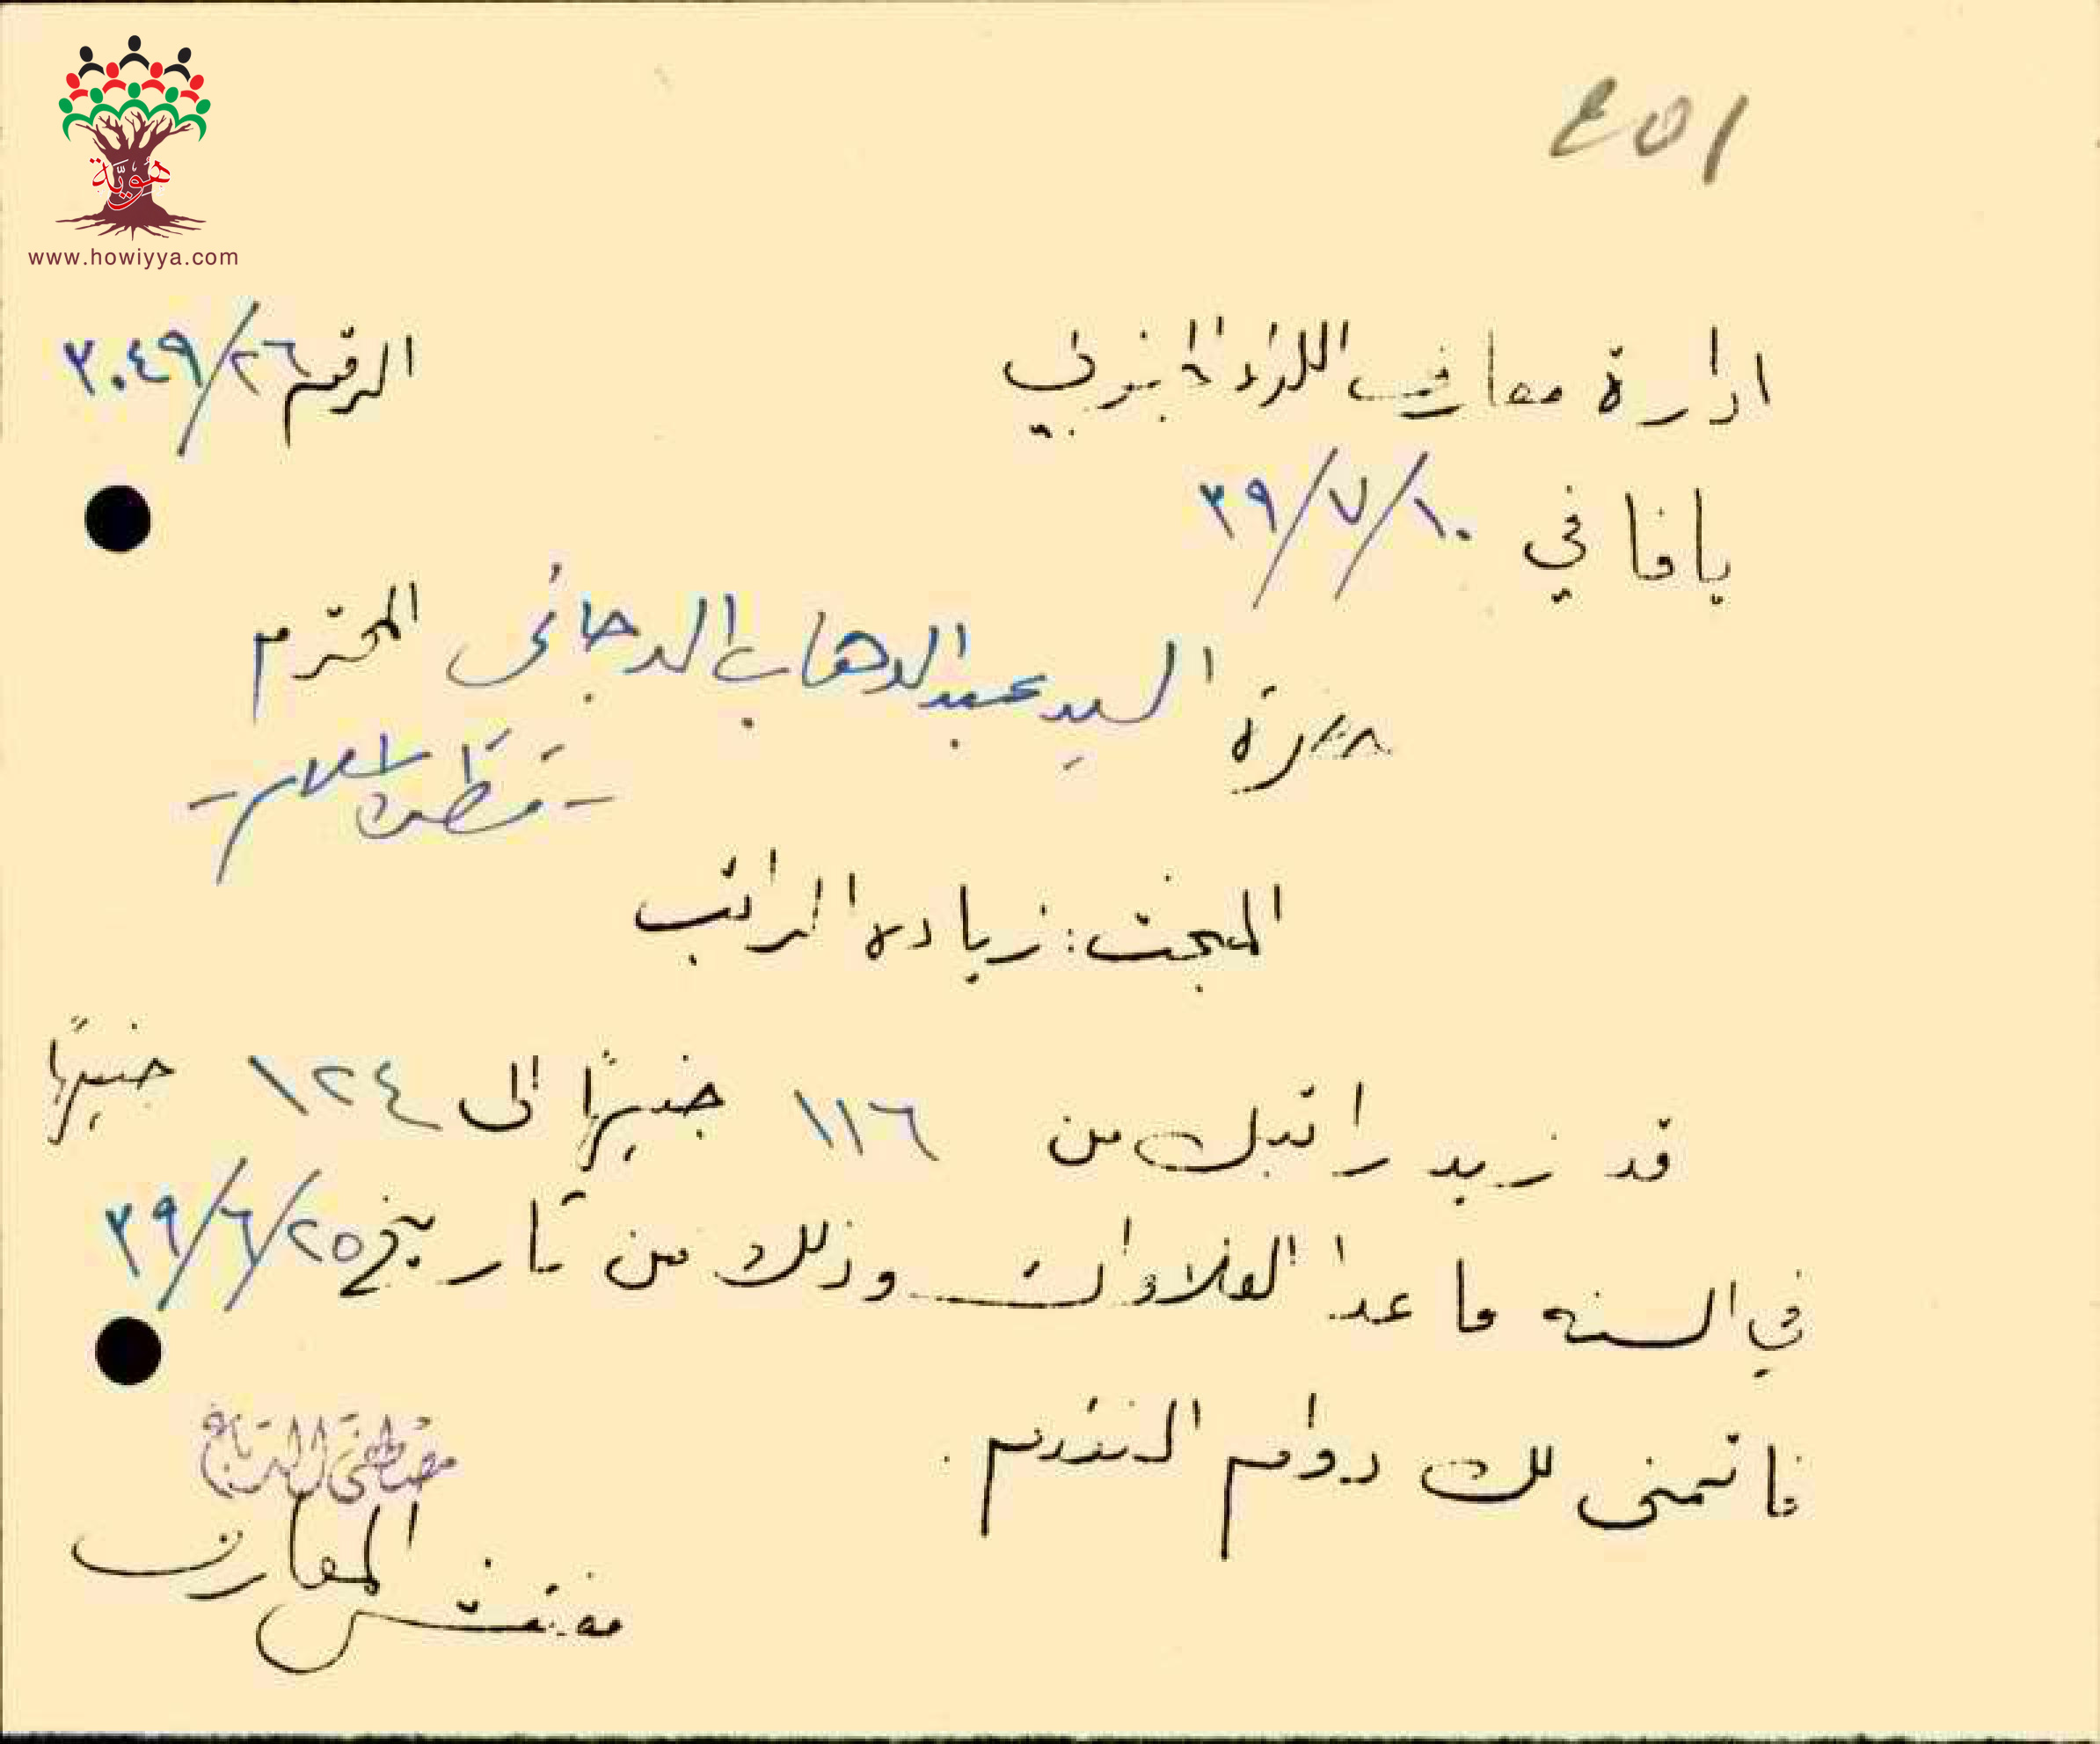 ٤٥١
هوية
www.howiyya.com
ادارة معارف اللواء الجنوبي الرقم ٣٠٤٩/٢٦
يافا في ١٠/٧/٣٩
حضرة السيد عبد الوهاب الدجاني المحترم
المبحث: زيادة الراتب
قد زيد راتبك من ١١٦ جنيهًا الى ١٢٤ جنيهًا
في السنه ما عدا العلاوات وذلك من تاريخ ٢٥/٦/٣٩
فاتمنى لك دوام التقدم.
مصطفى الدباغ
مفتش المعارف